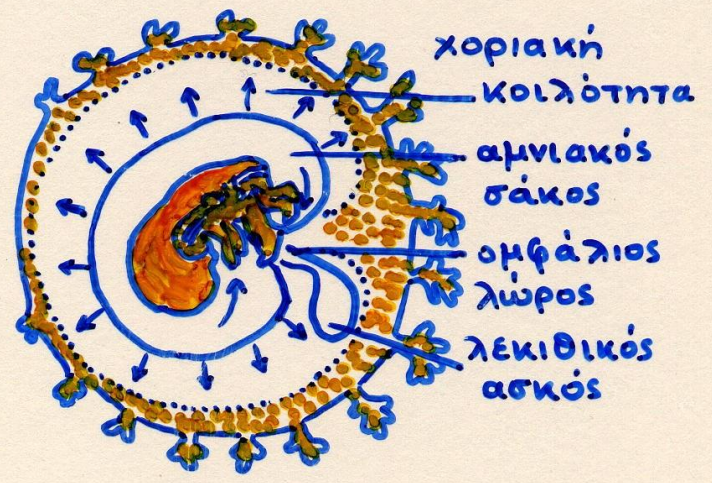 χοριακή
κοιλότητα
αμνιακός
σάκος
ομφάλιος
λώρος
λεκιθικός
ασκός